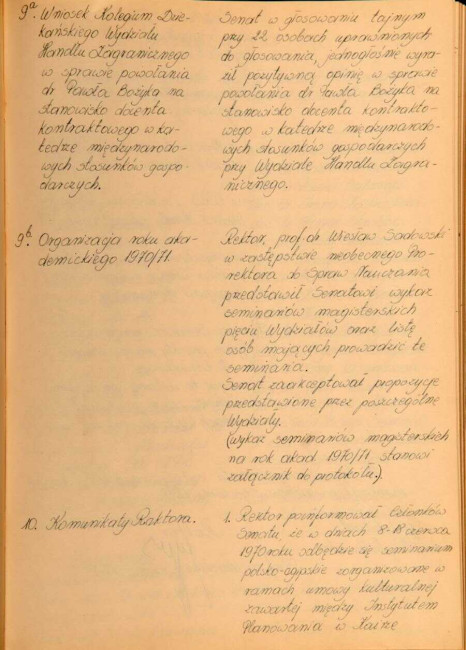 9a. Wniosek Kolegium Dzie-
kańskiego Wydziału
Handlu Zagranicznego
w sprawie powołania
dr Pawła Bożyka na
stanowisko docenta
kontraktowego w ka-
tedrze międzynarodo-
wych stosunków gospo-
darczych.
Senat w głosowaniu tajnym
przy 22 osobach uprawnionych
do głosowania, jednogłośnie wyra-
ził pozytywną opinię w sprawie
powołania dr Pawła Bożyka na
stanowisko docenta kontrakto-
wego w katedrze międzynarodo-
wych stosunków gospodarczych
przy Wydziale Handlu Zagra-
nicznego.
9b. Organizacja roku aka-
demickiego 1970/71.
Rektor, prof. dr Wiesław Sadowski
w zastępstwie nieobecnego Pro-
rektora do Spraw Nauczania
przedstawił Senatowi wykaz
seminariów magisterskich
pięciu Wydziałów oraz listę
osób mających prowadzić te
seminaria.
Senat zaakceptował propozycje
przedstawione przez poszczególne
Wydziały.
(wykaz seminariów magisterskich
na rok akad. 1970/71 stanowi
załącznik do protokołu.)
10. Komunikaty Rektora.
1. Rektor poinformował Członków
Senatu, że w dniach 8-18 czerwca
1970 roku odbędzie się seminarium
polsko-egipskie zorganizowane w
ramach umowy kulturalnej
zawartej między Instytutem
Planowania w Kairze